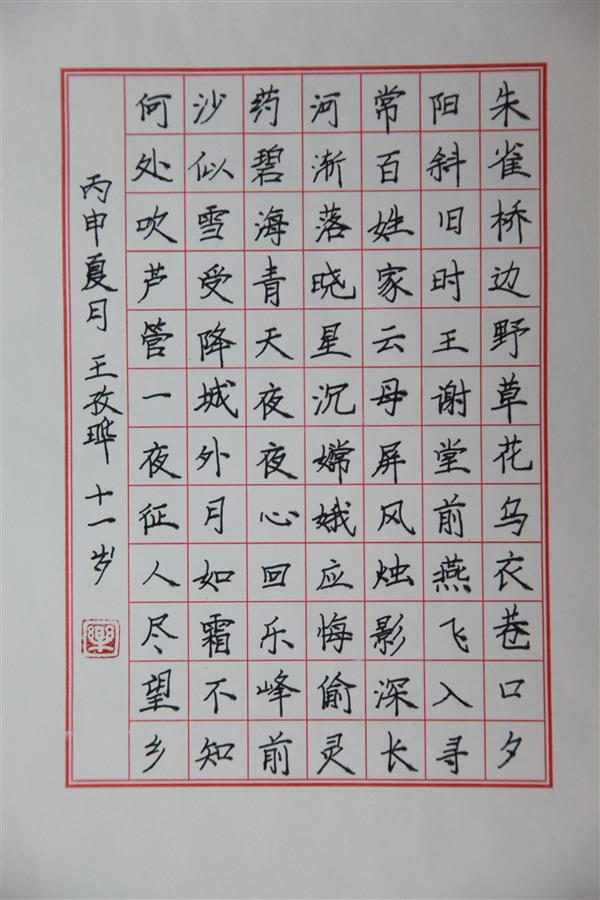 朱雀桥边野草花乌衣巷口夕
阳斜旧时王谢堂前燕飞入寻
常百姓家云母屏风烛影深长
河渐落晓星沉嫦娥应悔偷灵
药碧海青天夜夜心回乐峰前
沙似雪受降城外月如霜不知
何处吹芦管一夜征人尽望乡
丙申夏月 王孜骅 十一岁